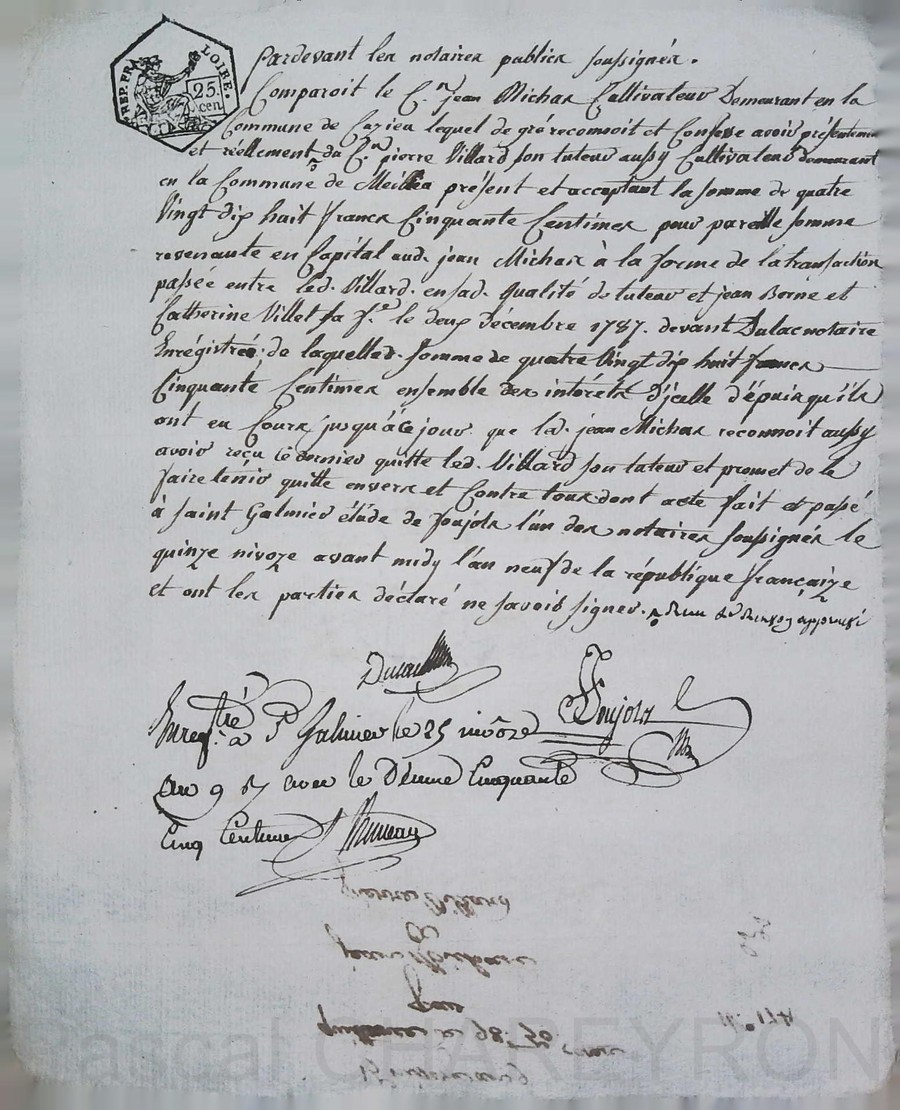 REP. FRA. LOIRE.
25. cen
Pardevant les notaires publics soussignés.
Comparoit le C.n jean Michas Cultivateur Demeurant en la
Commune de Cazieu lequel de gré reconnoit et Confesse avoir présentement
et réellement du C.n pierre Villard son tuteur aussy Cultivateur demeurant
en la Commune de présent et acceptant la somme de quatre
Vingt dix huit francs Cinquante Centimes pour pareille somme
revenante en Capital aud. jean Michas à la forme de la transaction
passée entre led. Villard. en sad. qualité de tuteur et jean Borne et
Catherine Villet sa f.e le deux Décembre 1787. devant Dulac notaire
Enrégistrée; de laquelle d. somme de quatre Vingt dix huit francs
Cinquante Centimes ensemble des intérèts D'jcelle dépuis qu'ils
ont eu Cours jusqu'à ce jour. que led. jean Michas reconnoit aussy
avoir reçu ce dernier quitte led. Villard son tuteur et promet de le
faire tenir quitte envers et Contre tous dont acte fait et passé
à saint Galmier étude de Soujols l'un des notaires soussignés le
quinze nivoze avant midy l'an neuf de la république françaize
et ont les parties déclaré ne savoir signer.
Soujols
Enreg.tré à S.t Galmier le 25 nivôse
an 9 le Décime Cinquante
Cinq Centimes
pierre Villard
jean Michas
quittance de 98. 50.
N.o 174
Pascal CHAREYRON